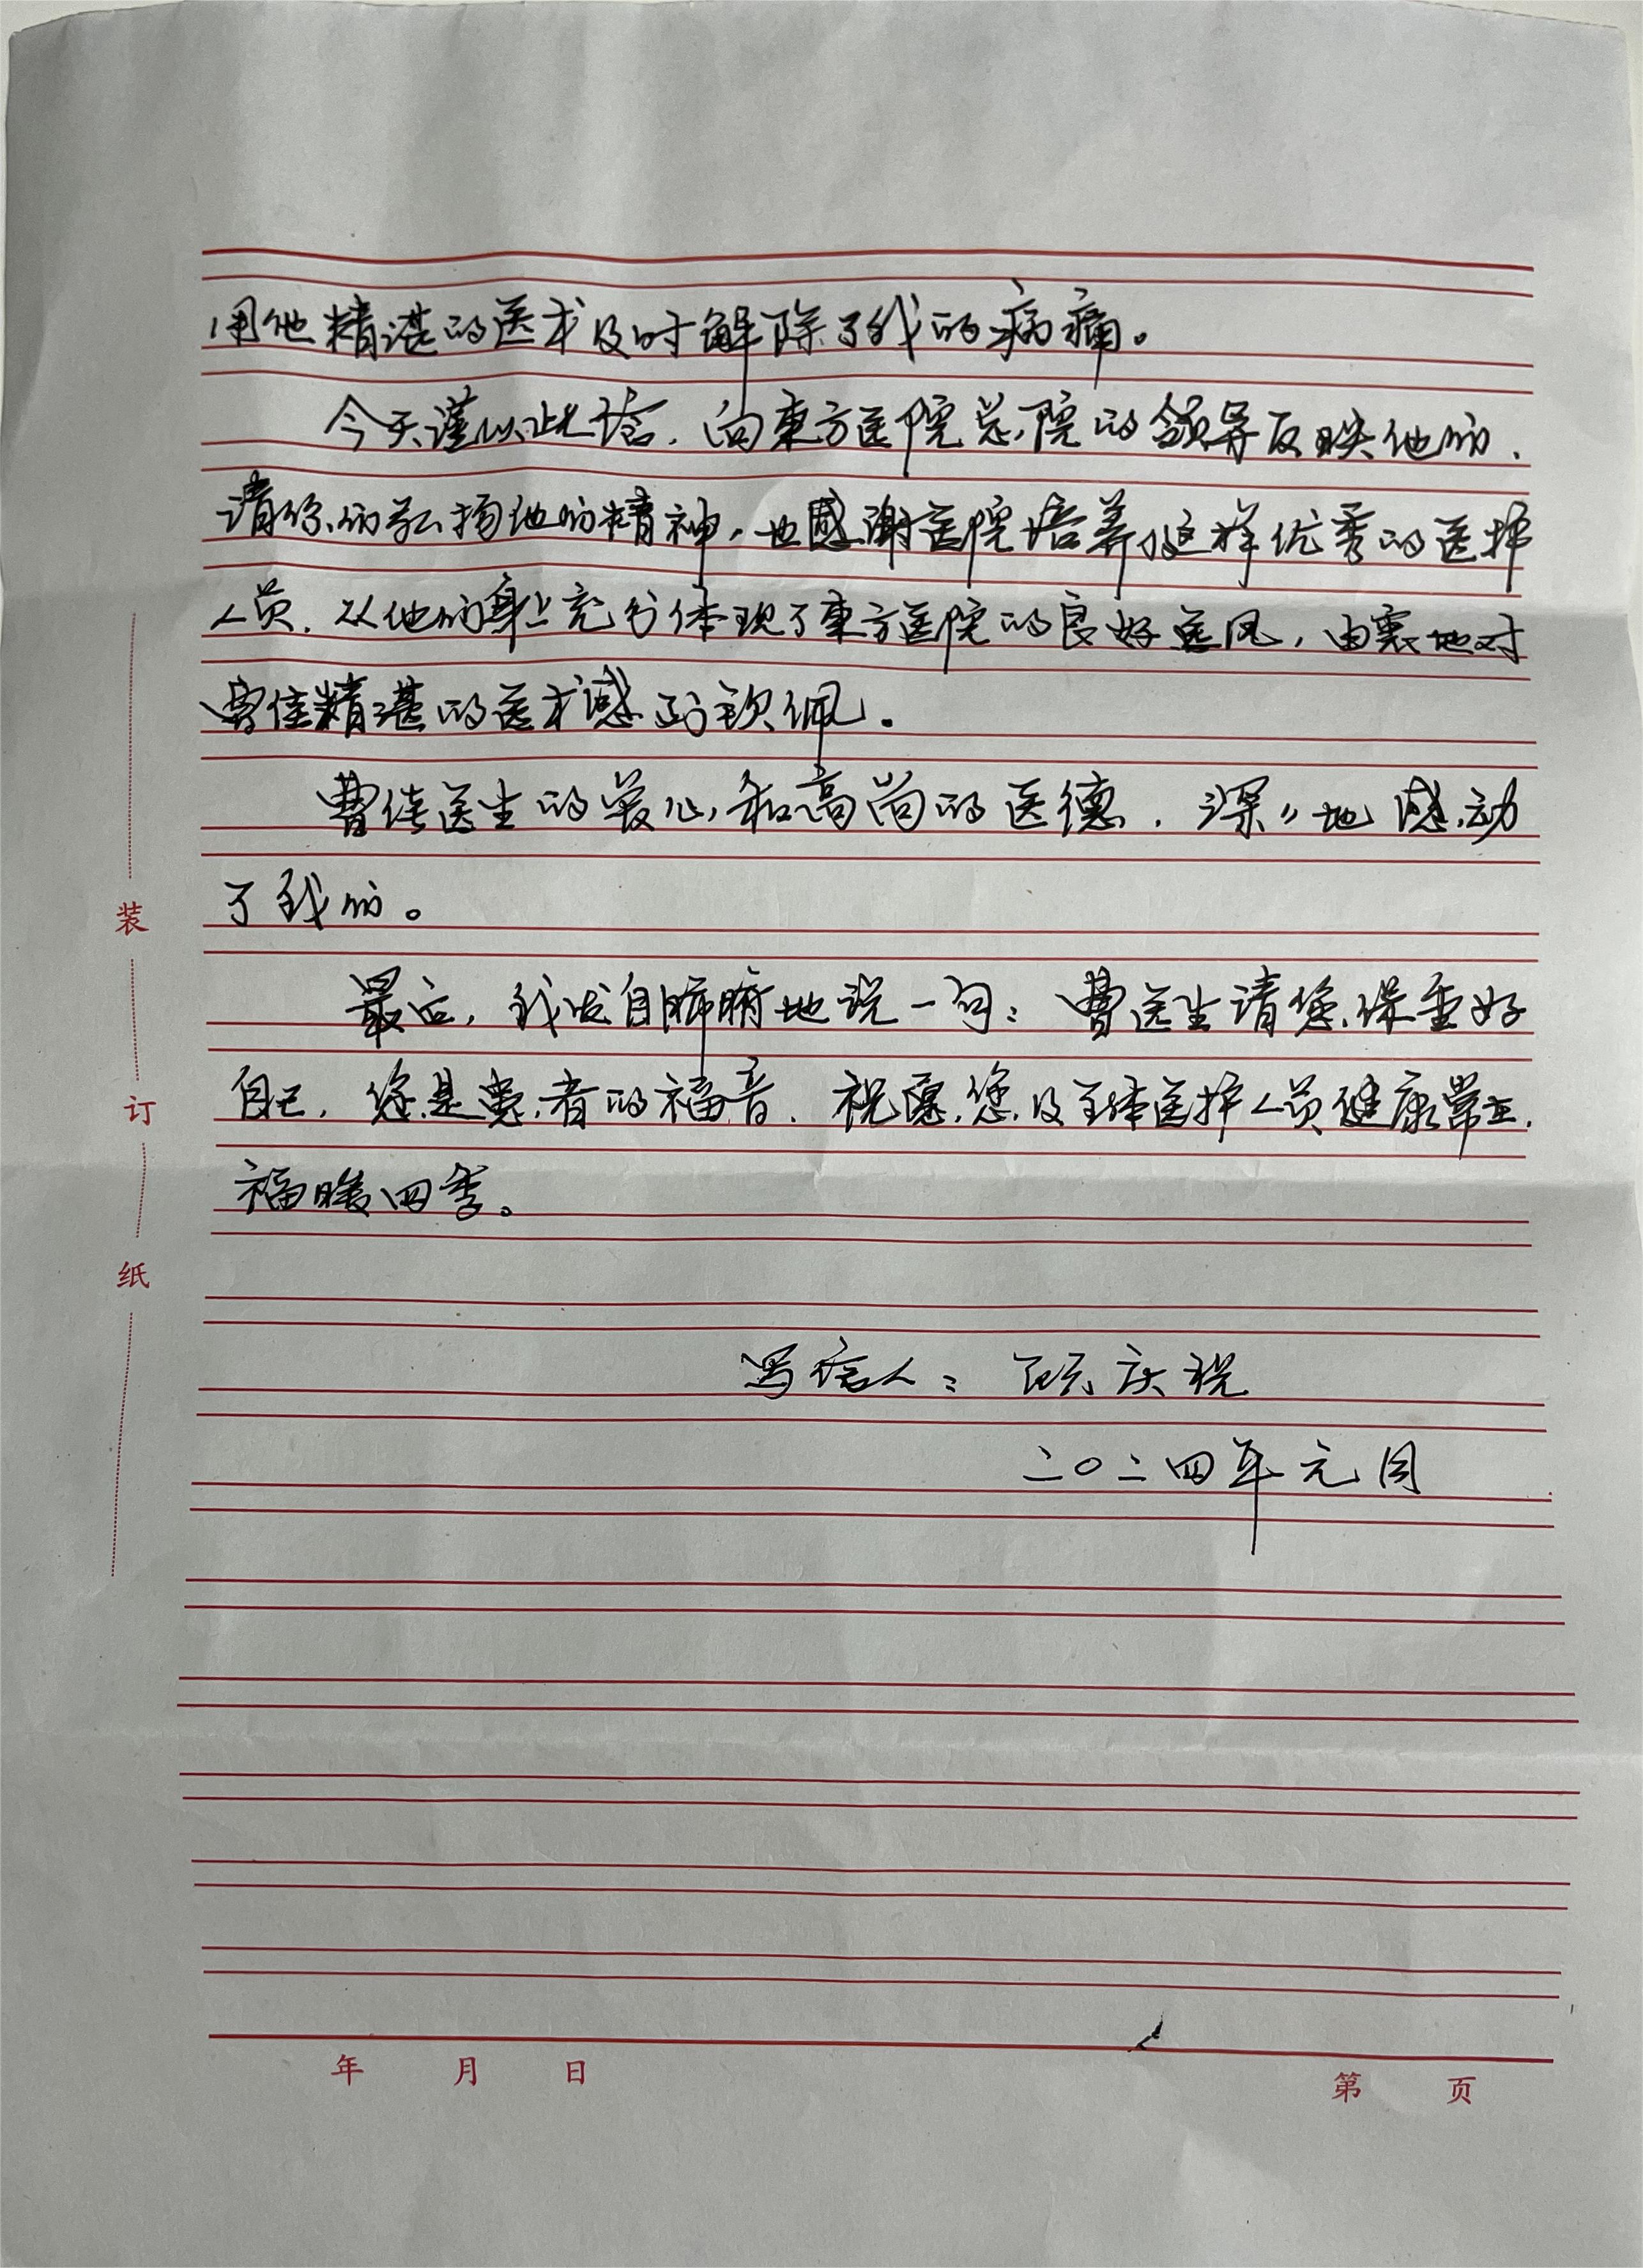 用他精湛的医术及时解除了我的病痛。
今天谨以此信，向東方医院总院的领导反映他们，
请你们弘扬他们精神，也感谢医院培养这样优秀的医护
人员，从他们身上充分体现了東方医院的良好医风，由衷地对
曹佳精湛的医术感到钦佩。
曹佳医生的爱心和高尚的医德，深〃地感动
了我们。
最后，我发自肺腑地说一句：曹医生请您保重好
自己，您是患者的福音，祝愿您及全体医护人员健康常在，
福暖四季。
写信人：顾庆
二〇二四年元月
装
订
纸
年 月 日
第 页